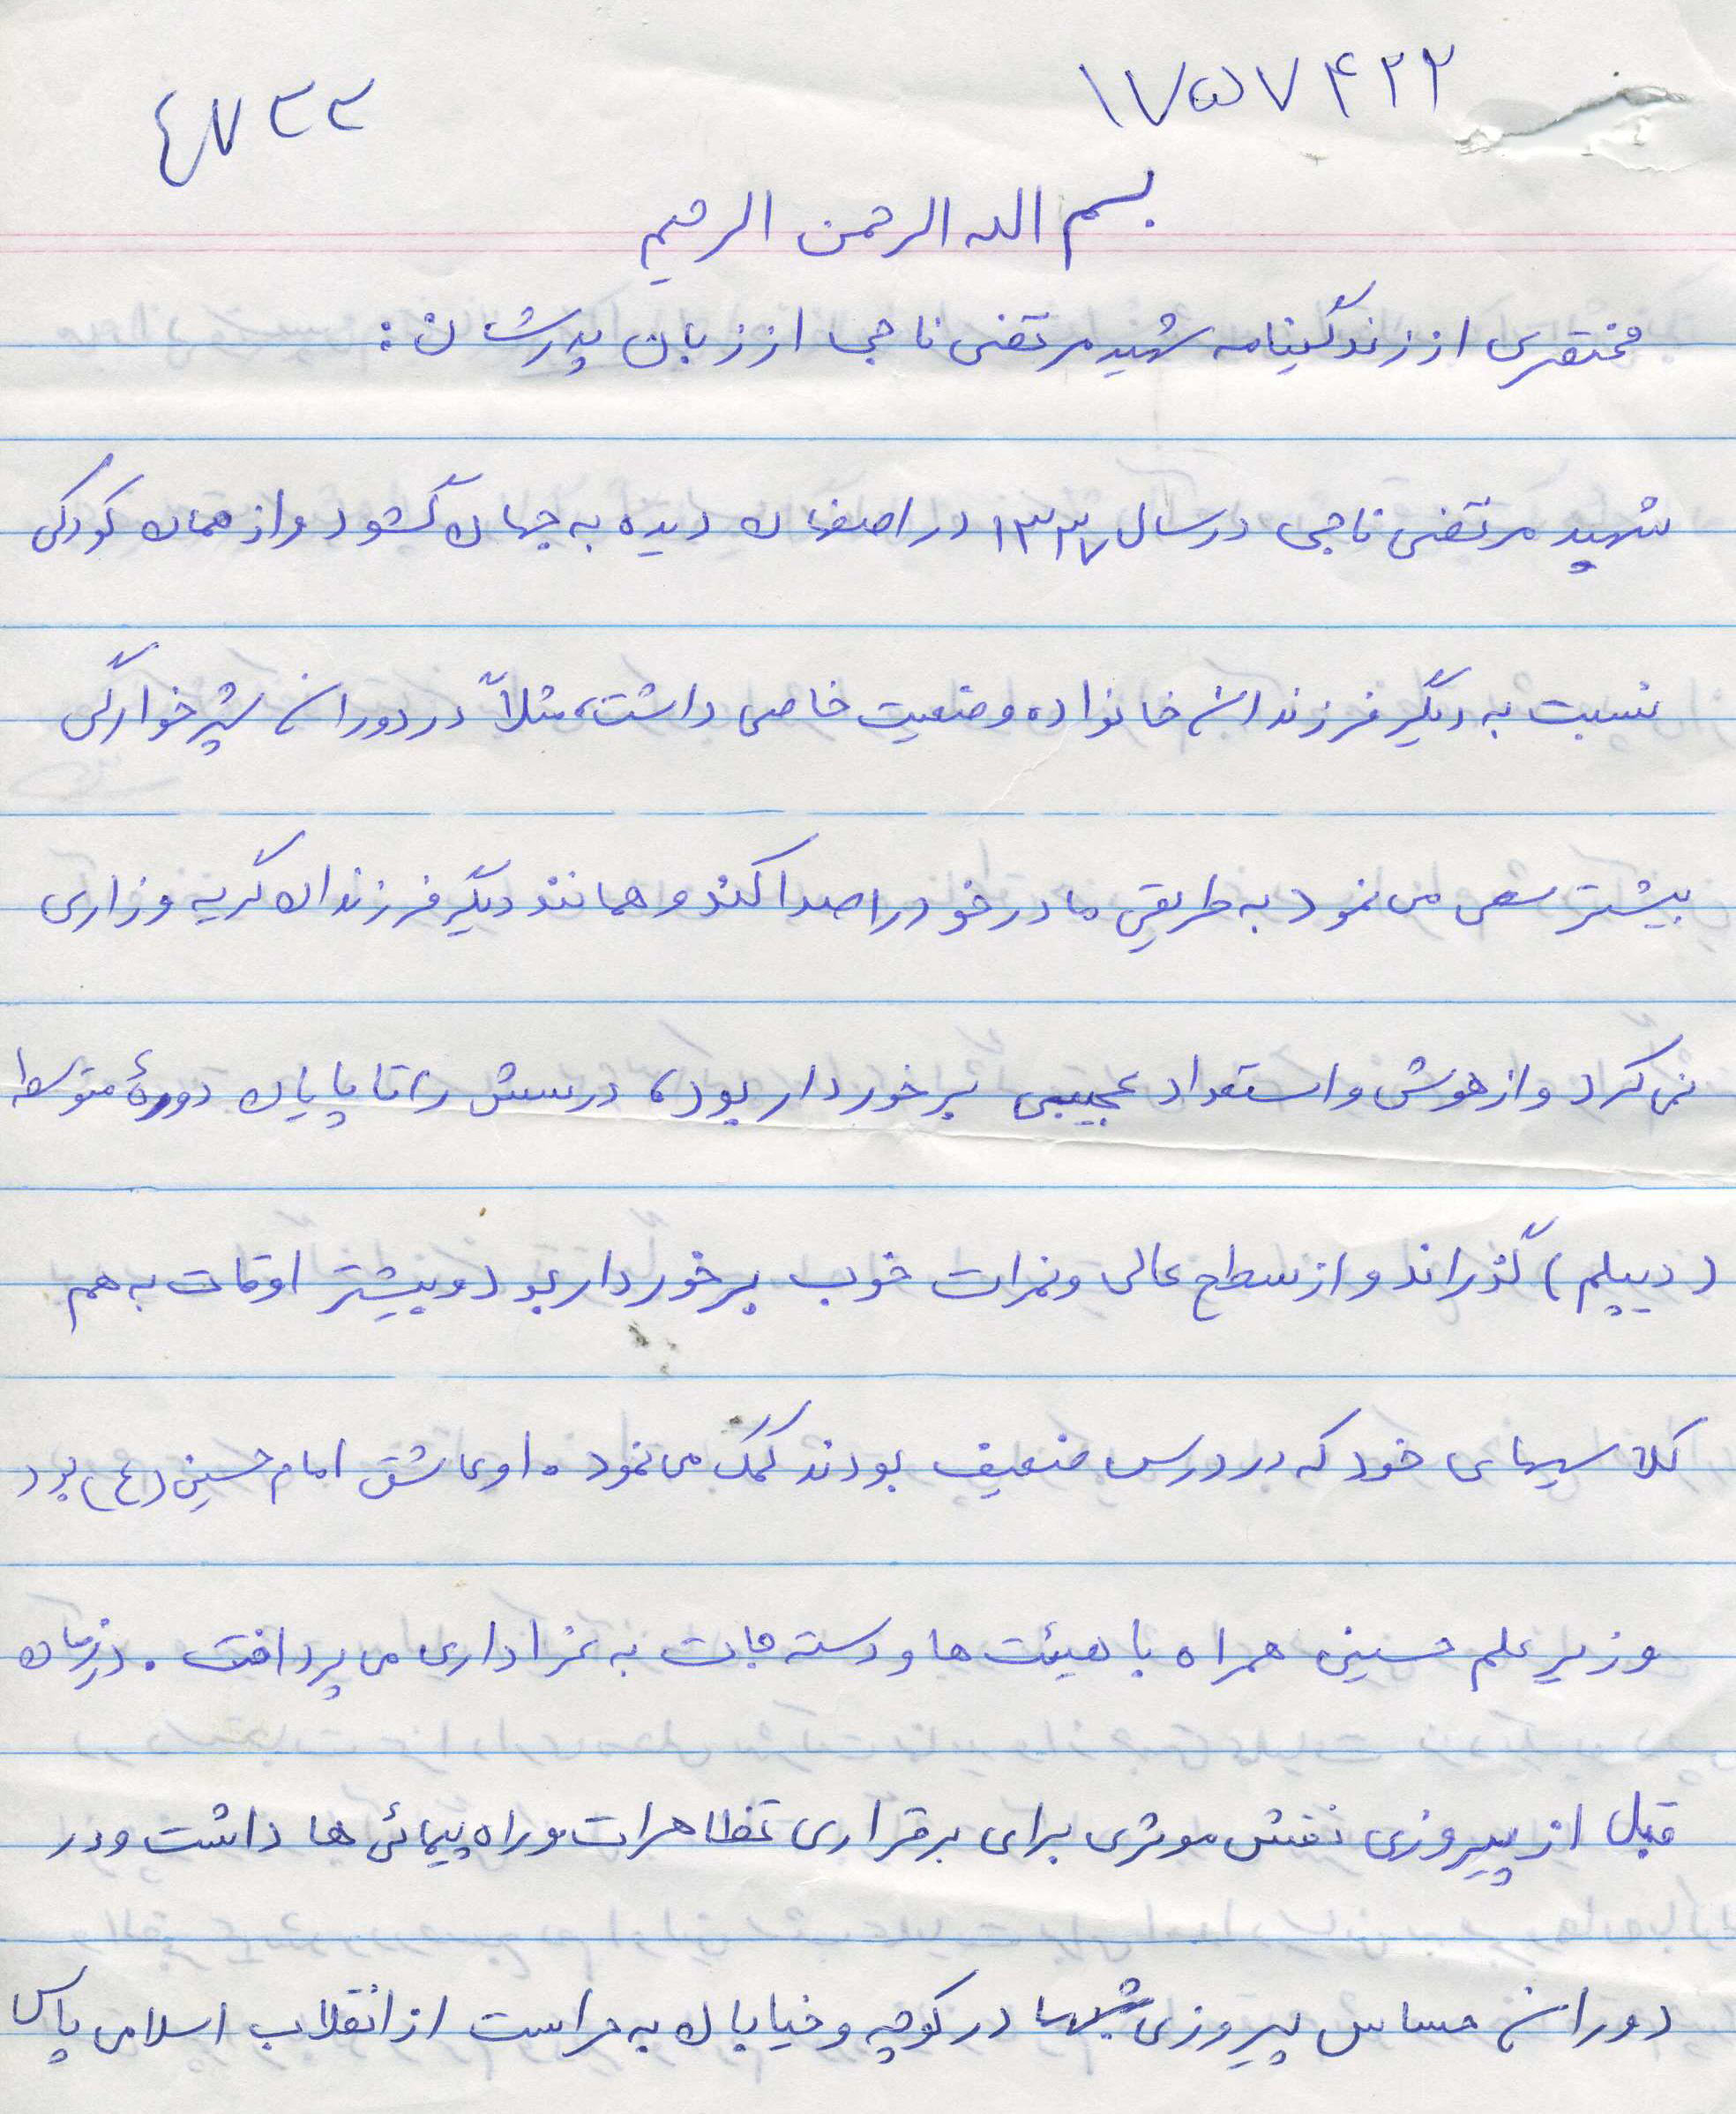 ۱۷۵۷۴۲۲
۴۷۳۳
بسم الله الرحمن الرحیم
مختصری از زندگینامه شهید مرتضی ناجی از زبان پدرشان :
شهید مرتضی ناجی در سال ۱۳۳۷ در اصفهان دیده به جهان گشود و از همان کودکی
نسبت به دیگر فرزندان خانواده وضعیت خاصی داشت، مثلاً در دوران شیرخوارگی
بیشتر سعی می نمود به طریقی مادر خود را صدا کند و همانند دیگر فرزندان گریه و زاری
نمی کرد و از هوش و استعداد عجیبی برخوردار بود، درسش را تا پایان دورۀ متوسطه
(دیپلم) گذراند و از سطح عالی و نمرات خوب برخوردار بود و بیشتر اوقات به هم
کلاسیهای خود که در درس ضعیف بودند کمک می نمود . او عاشق امام حسین (ع) بود
و زیر علم حسینی همراه با هیئت ها و دسته جات به عزاداری می پرداخت . در زمان
قبل از پیروزی نقش موثری برای برقراری تظاهرات و راه پیمائی ها داشت و در
دوران حساس پیروزی شبها در کوچه و خیابان به حراست از انقلاب اسلامی پاس